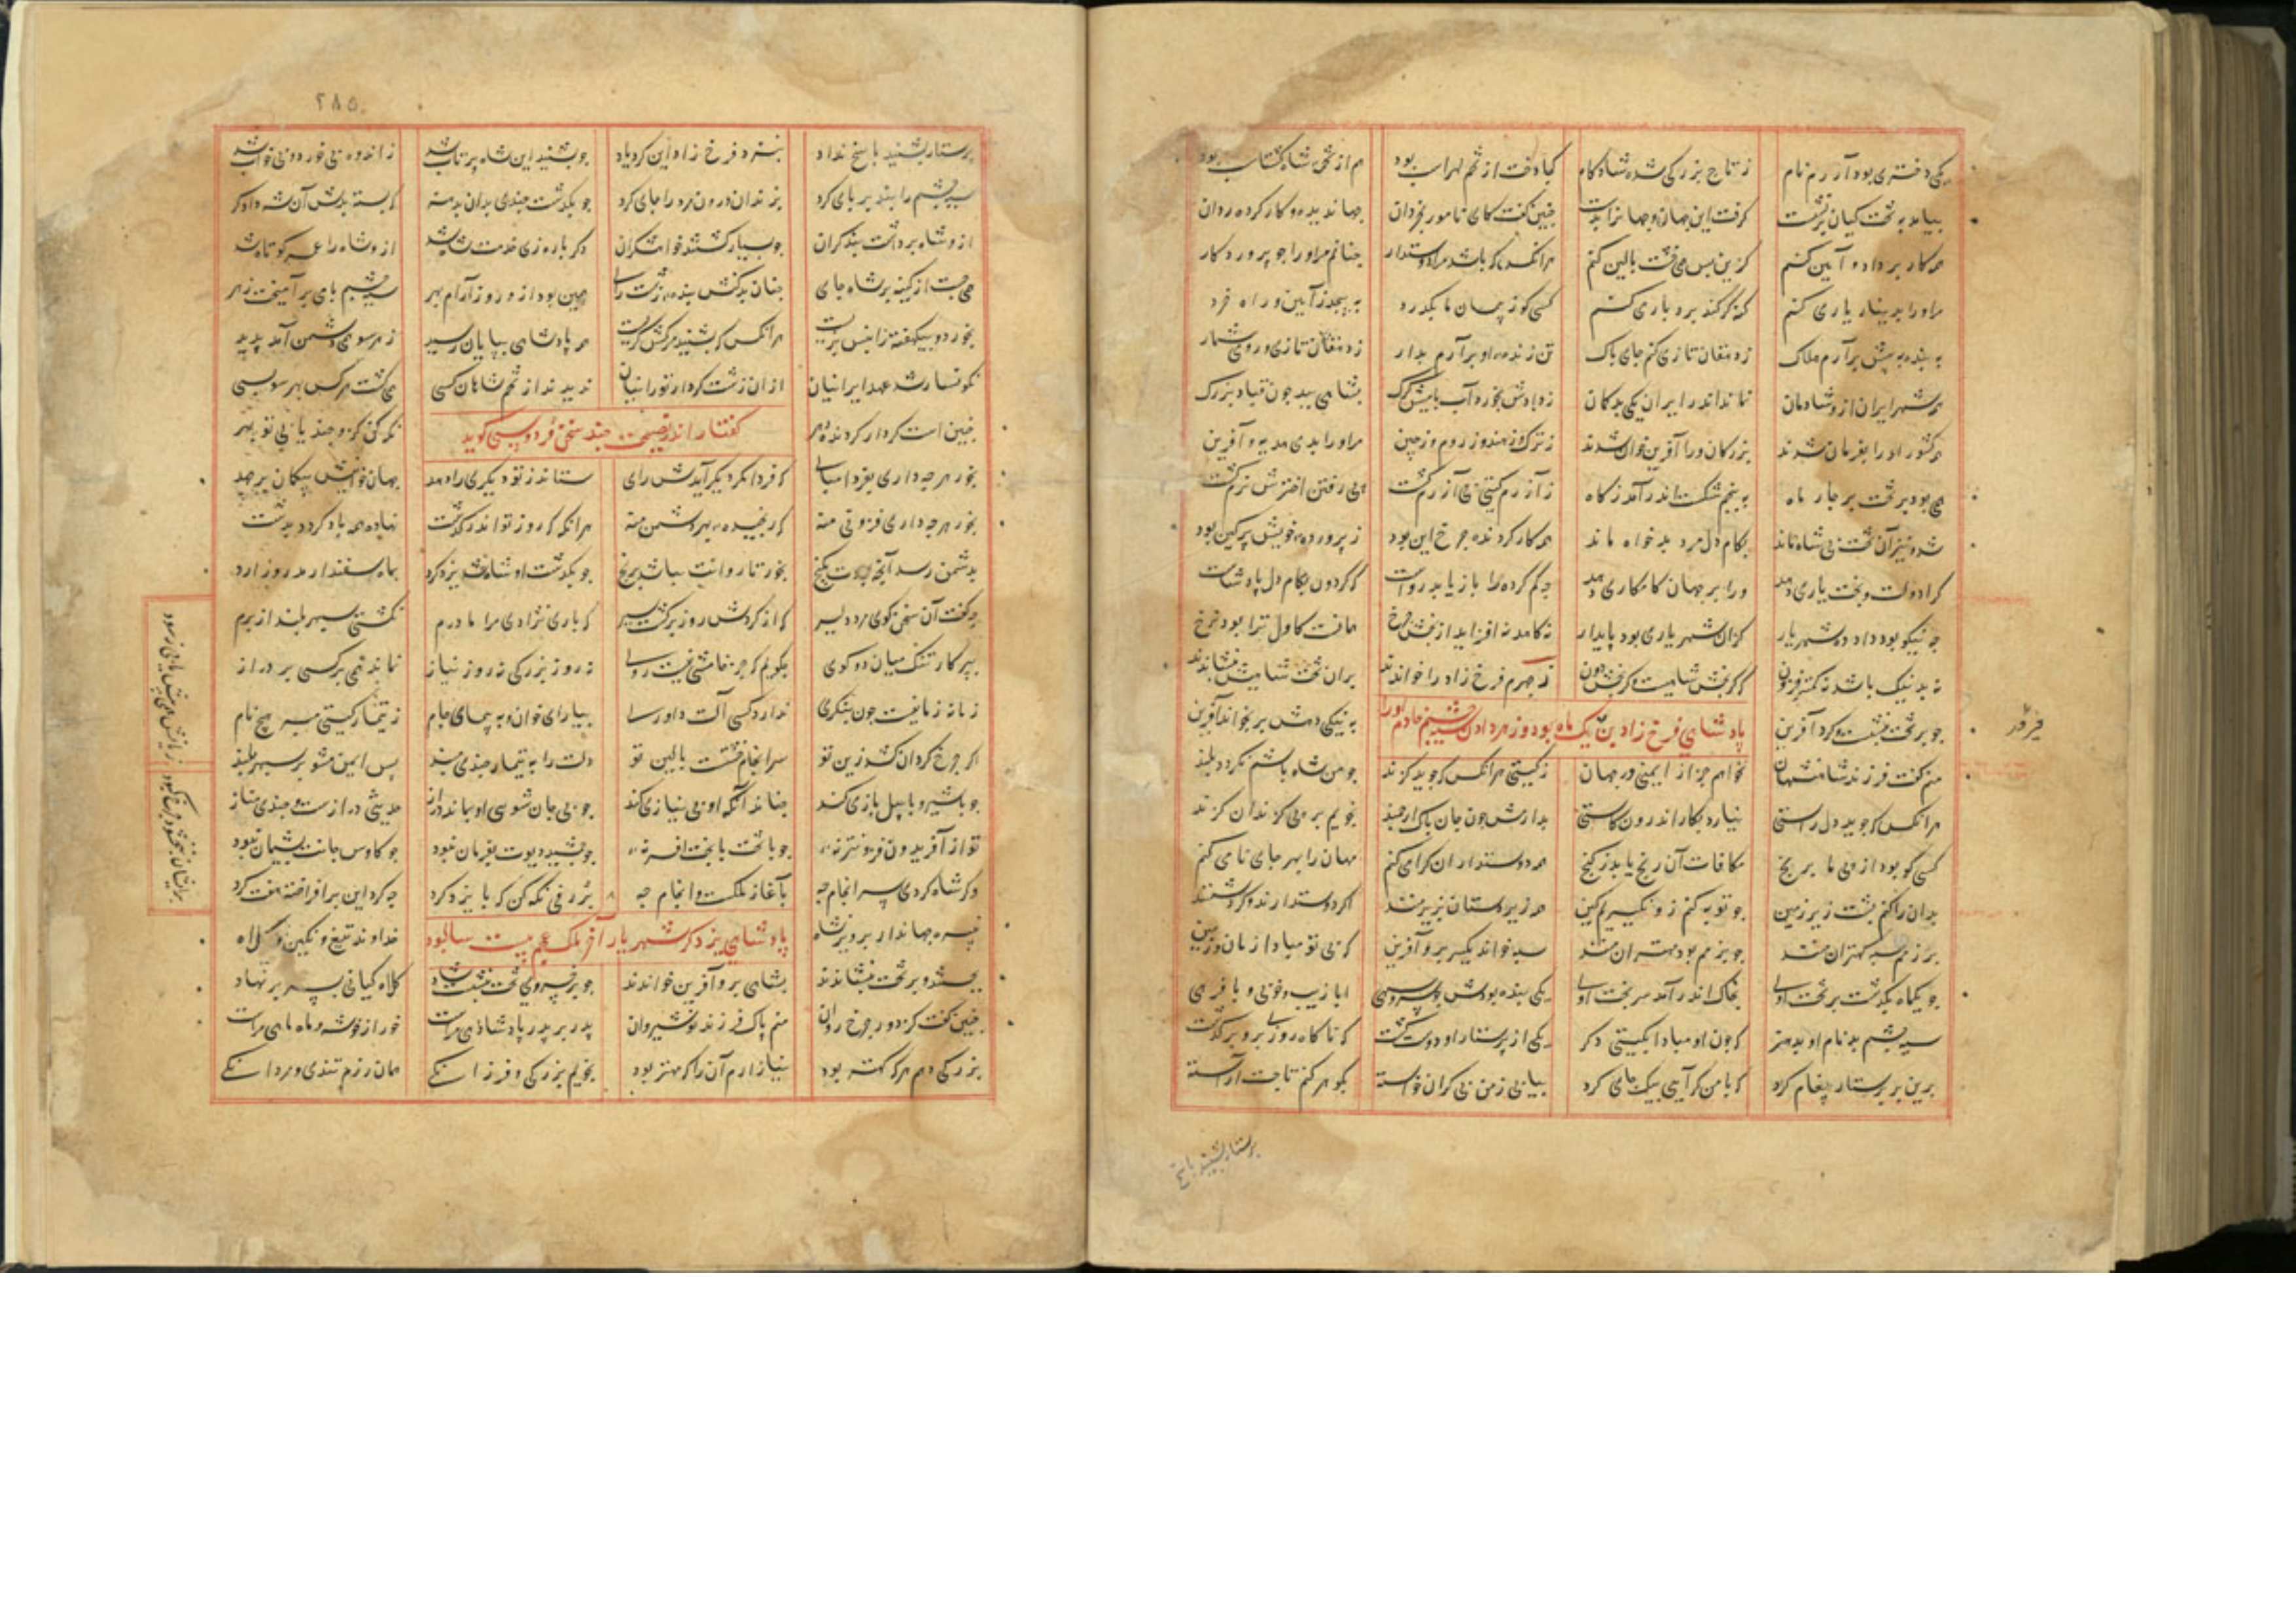 یکی دختری بود آزرم نام ز تاج بزرگی شده شادکام کیا دخت از تخم لهراسب بود هم از تخمه شاه گشتاسب بود
بیامد به تخت کیان برنشست گرفت این جهان جهان را بدست چنین گفت کای نامور بخردان جهاندیده و کار کرده ردان
همه کار بر داد و آیین کنیم کزین پس همی خشت بالین کنیم هرانکس که باشد مرا دوستدار چنانم مر او را چو پروردگار
مر او را بدینار یاری کنم گنه گر کند بردباری کنم کسی کو ز پیمان ما بگذرد بپیچد ز آیین و راه خرد
به بندم به پیش برآرم هلاک ز دهقان تازی کنم جای پاک تن زنده او برآرم بدار ز دهقان تازی و رومی شمار
همه شهر ایران ازو شادمان نماند اندر ایران یکی بدگمان ز دادش بخورد آب با میش گرگ بشاهی ببد چون قباد بزرگ
همه کشور او را بفرمان شدند بزرگان ورا آفرین خوان شدند ز ترک و ز هند و ز روم و ز چین مر او را بدی هدیه و آفرین
همی بود بر تخت بر چار ماه به پنجم شکست اندر آمد ز گاه ز آزرم گیتی بی آزرم گشت پی رفتن اخترش نرم گشت
شد و نیز آن تخت بی شاه ماند بکام دل مرد بدخواه ماند همه کار گردنده چرخ این بود ز پرورده خویش پر کین بود
کرا دولت و بخت یاری دهد ورا بر جهان کامکاری دهد چه گم کرده را باز یابد رواست که گردون بکام دل پادشاست
چه نیکو بود داد ده شهریار کزان شهریاری بود پایدار
ز جهرم فرخ زاد را خواندند بران تخت شاهیش بنشاندند
پادشاهی فرخ زاد یک ماه بود و زهر دادن سیه چشم خادم او را
چو بر تخت بنشست و کرد آفرین به نیکی دهش بر بخواند آفرین
منم گفت فرزند شاهنشهان نخواهم جز از ایمنی در جهان ز گیتی هر انکس که جوید گزند چو من شاه باشم نگردد بلند
هر انکس که جوید دل راستی نیارد بکار اندرون کاستی بدارمش چون جان پاک ارجمند نجویم بر بی گزندان گزند
کسی کو بود از پی ما برنج مکافات آن رنج یابد ز گنج همه دوستداران گرامی کنم مهان را بهر جای نامی کنم
بدان را کنم پشت زیر زمین همه زیردستان زیر منند اگر دوستدارند و گر دشمنند
به رزم سپه کهتران منند چو بزمم بود مهتران منند سپه خواند یکسر برو آفرین که بی تو مبادا زمان و زمین
چو یکماه بگذشت بر تخت اوی بخاک اندر آمد سر بخت اوی یکی بنده بودش چو سرو سهی ابا زیب و خوبی و با فرهی
سیه چشم بد نام او بد هنر که چون او مبادا بگیتی دگر یکی از پرستار او دوست گشت که ناگاه روزی برو برگذشت
برین بر پرستار پیغام کرد که با من گر آیی بیک جای گرد بیابی ز من بی کران خواسته بگوهر کنم تاجت آراسته
پرستار بشنید پاسخ
۲۸۵
پرستار بشنید پاسخ نداد بنزد فرخ زاد این کرد یاد چو بشنید این شاه پر تاب شد ز اندوه بی خورد و بی خواب شد
سیه چشم را بند بر پای کرد بزندان درون مرد را جای کرد چو بگذشت چندی بدان بد منه
ازو شاه برداشت بند گران چو بسیار گشتند خواهشگران دگر باره زی خدمت شاه شد ازو شاه را عمر کوتاه شد
همی جست از کینه بر شاه جای چنان بد کنش بنده زشت رای همین بود از و روز آرام بهر سیه چشم با می برآمیخت زهر
بخورد و بیکهفته زانپس بزیست هرانکس که بشنید برکش گریست همه پادشاهی بپایان رسید ز هر سو همی دشمن آمد پدید
نگونسار شد عهد ایرانیان از ان زشت کردار تورانیان ندیدند از تخم شاهان کسی همی گشت هر کس بهر سو بسی
گفتار اندر نصیحت چند سخن فردوسی گوید
چنین است کردار گردنده دهر نگه کن کزو چند یابی تو بهر
بخور هر چه داری بفردا مپای که فردا مگر دیگر آیدش رای ستاند ز تو دیگری را دهد جهان خوانیش بیگمان بر جهد
بخور هر چه داری فزونی منه که رنجیده بهر دشمن منه هرانگه که روز تو اندر گذشت نهاده همه باد گردد بدشت
بدشمن رسد آنچه بودت بگنج بخور تا روانت نباشد برنج چو بگذشت او شاه شد یزدگرد بماه سفندارمد روز ارد
چه گفت آن سخن گوی مرد دلیر که از گردش روز برگشت سیر که باری نزادی مرا مادرم نگشتی سپهر بلند از برم
بپرگار تنگ میان دو گوی چگویم که جز خامشی نیست روی نه روز بزرگی نه روز نیاز نماند همی بر کسی بر دراز
زمانه زمانیست چون بنگری ندارد کسی آلت داوری بیارای خوان و به پیمای جام ز تیمار گیتی مبر هیچ نام
اگر چرخ گردان کشد زین تو سرانجام خشتست بالین تو دلت را به تیمار چندی مبند پس ایمن مشو بر سپهر بلند
چو با شیر و با پیل بازی کند چنان دانکه او بی نیازی کند چو بی جان شوی او بماند دراز حدیثی درازست چندی مناز
تو از آفریدون فزونتر نه چو با تخت با بخت افسر نه چو جمشید دیوت بفرمان نبود چو کاوس جانت پشیمان نبود
و گر شاه کردی سرانجام چه باغاز ملکت و انجام چه بژرفی نگه کن که با یزدگرد چه کرد این برافراخته هفت گرد
پادشاهی یزدگرد شهریار آخر ملک عجم بیست سال بود
نبیره جهاندار پرویز شاه خداوند تیغ و نگین و کلاه
بجستند و بر تخت بنشاندند بشاهی برو آفرین خواندند چو بر خسروی تخت بنشست شاد کلاه کیانی بسر بر نهاد
چنین گفت کز دور چرخ روان منم پاک فرزند نوشیروان پدر بر پدر پادشاهی مراست خور از خوشه و ماه ماهی مراست
بزرگی دهم هر که کهتر بود نیازارم آن را که مهتر بود نجویم بزرگی و فرزانگی همان رزم تندی و مردانگی